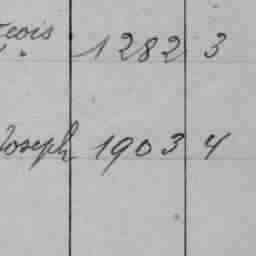 çois 1282 3
Joseph 1903 4